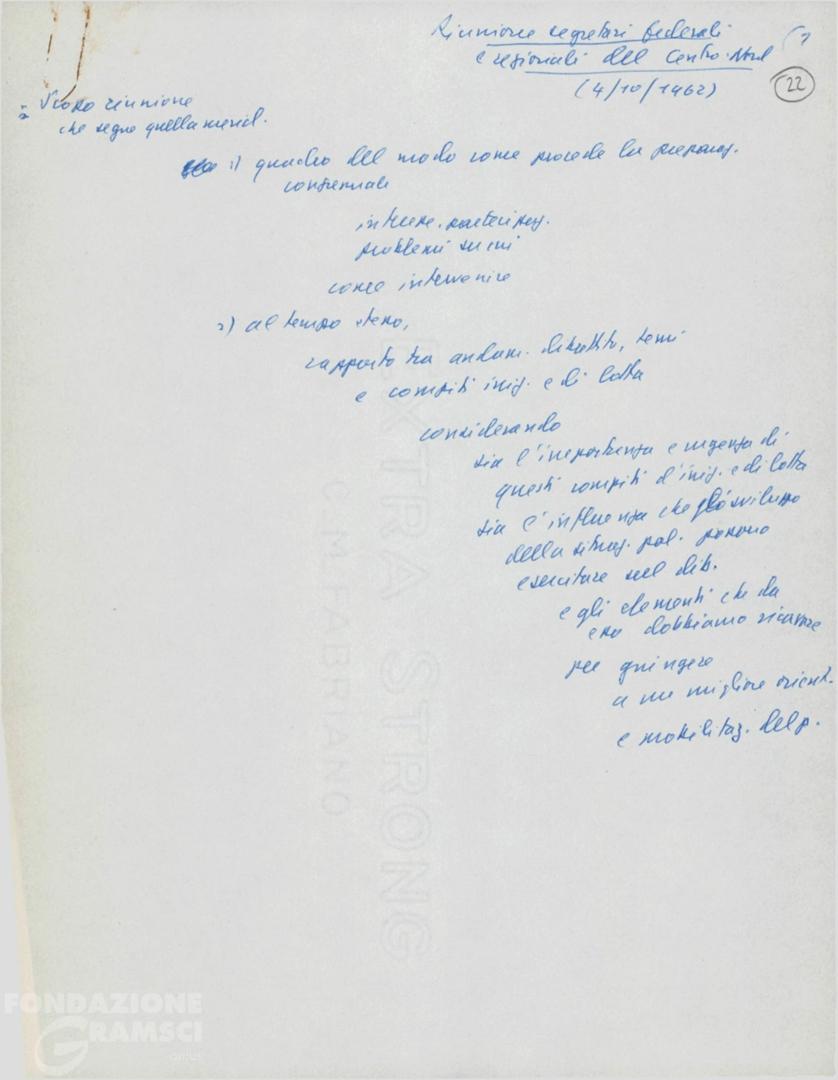 Riunione segretari federali
e regionali del Centro-Nord
(4/10/1962)
22
Scopo riunione
che segue quella merid.
1) quadro del modo come procede la preparaz.
congressuale
interesse, partecipaz.
problemi su cui
come intervenire
2) al tempo stesso,
rapporto tra andam. dibattito, temi
e compiti iniz. e di lotta
considerando
sia l'importanza e urgenza di
questi compiti d'iniz. e di lotta
sia l'influenza che gli sviluppo
della situaz. pol. possono
esercitare sul dib.
e gli elementi che da
essa dobbiamo ricavare
per giungere
a un migliore orient.
e mobilitaz. del p.
EXTRA STRONG
C. M. FABRIANO
FONDAZIONE
GRAMSCI
onlus